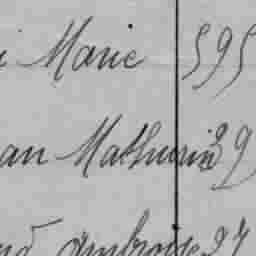 i Marie 595
an Mathurin 29
nd Ambroise 27